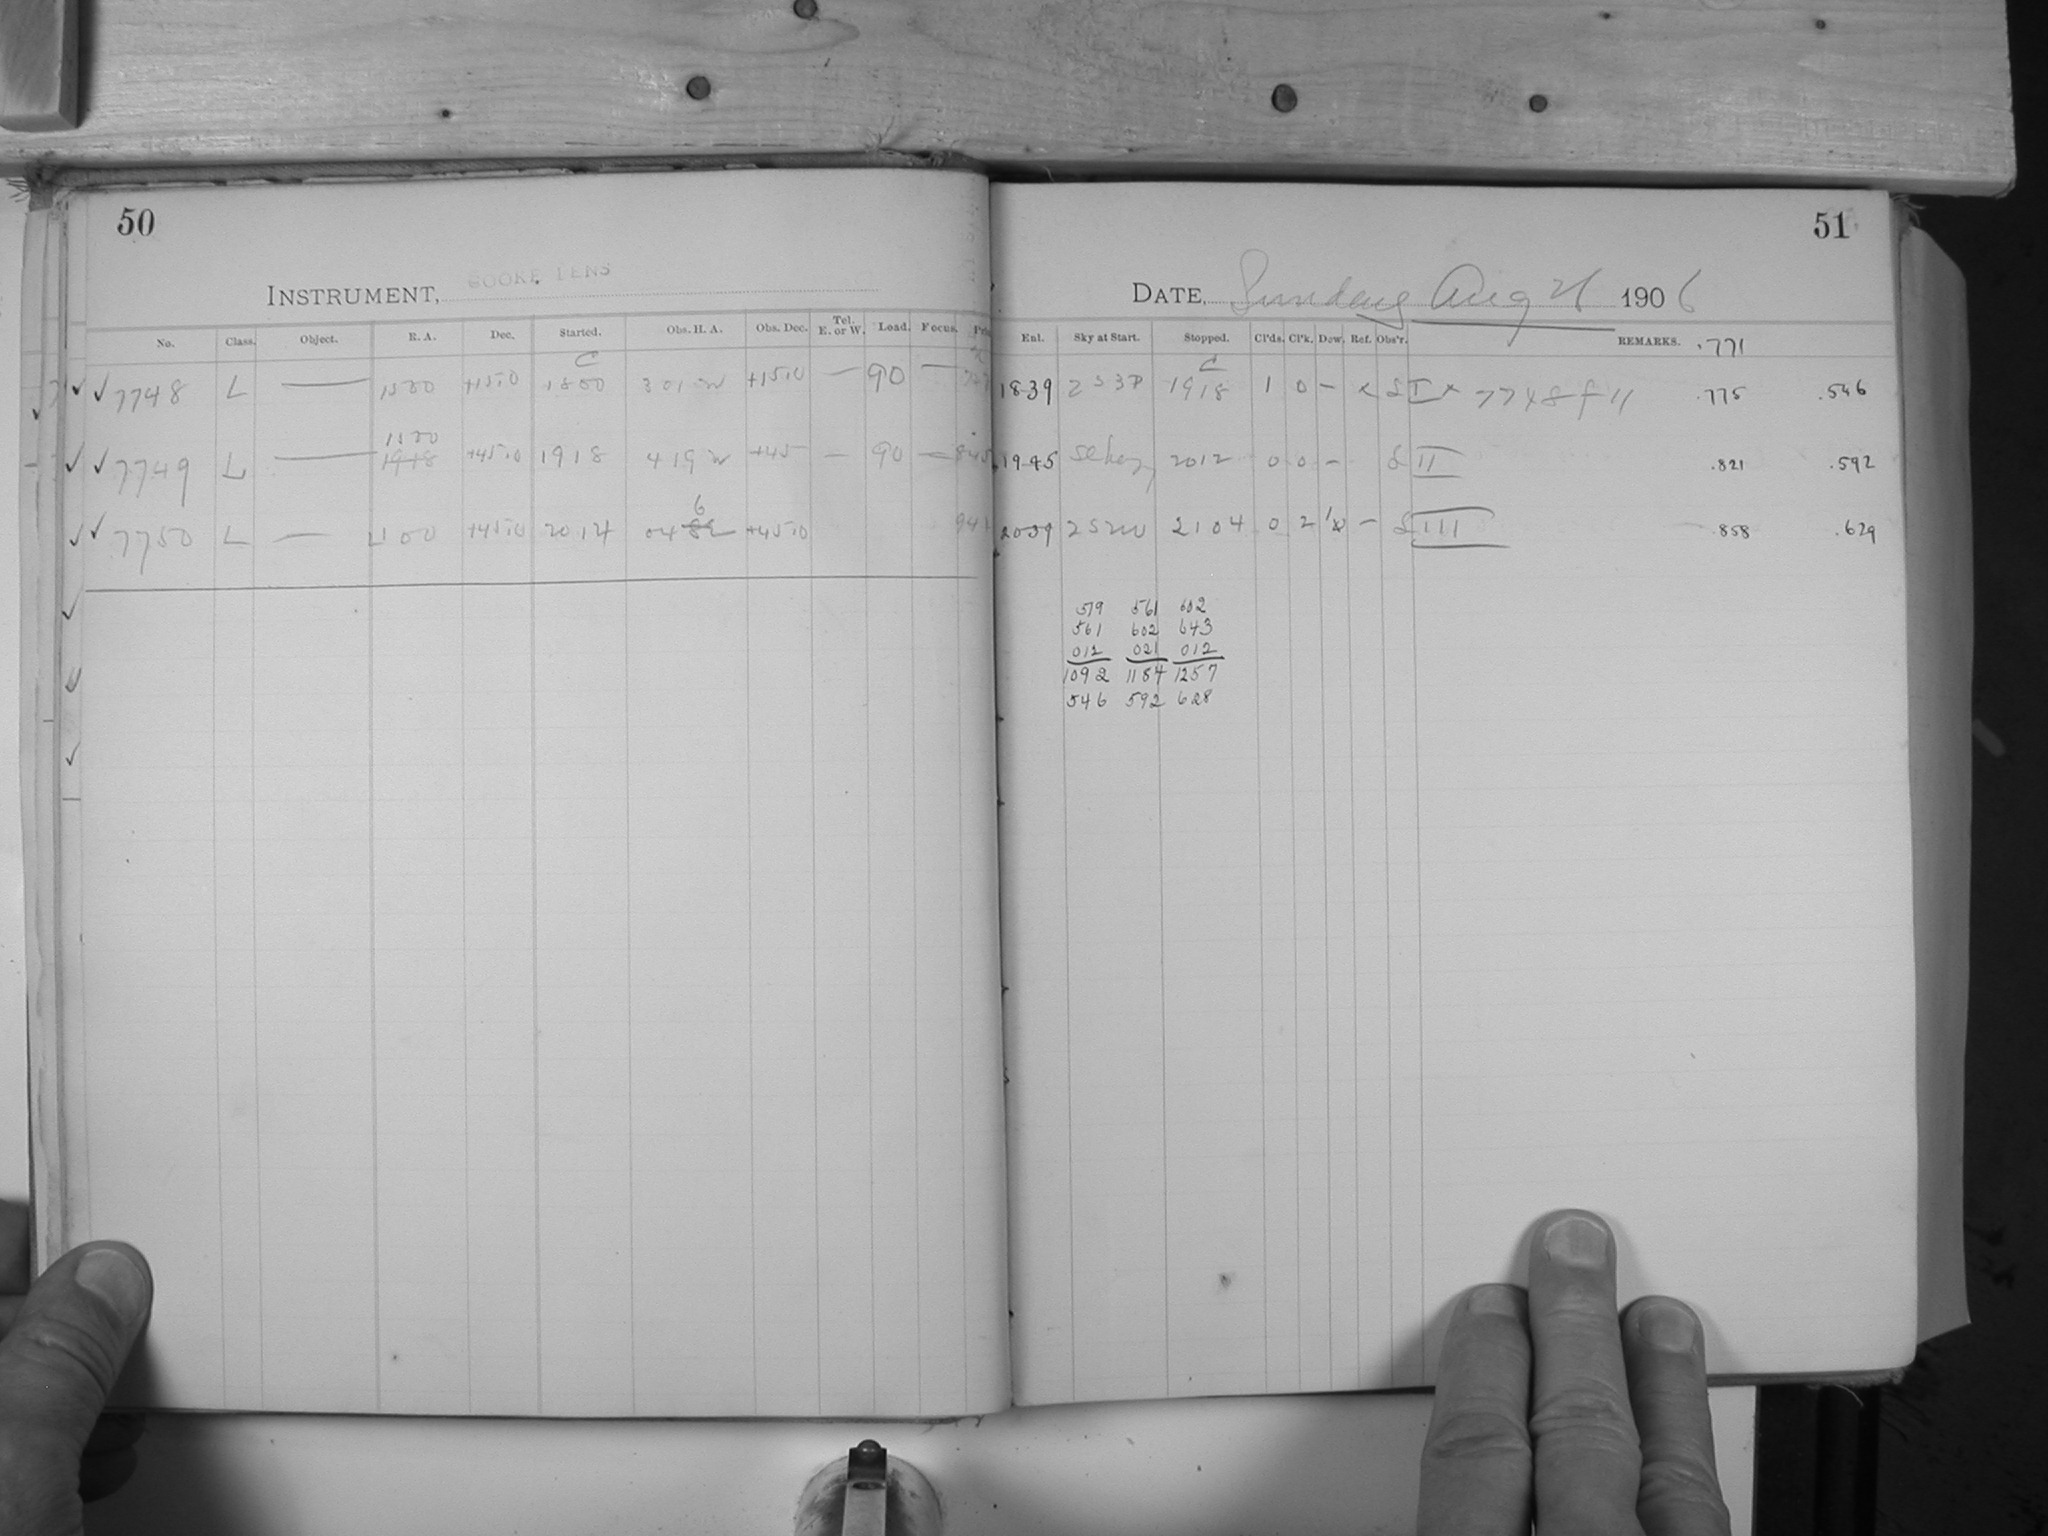 50
INSTRUMENT, COOKE LENS
No. Class. Object. R. A. Dec. Started. Obs. H. A. Obs. Dec. Tel. E. or W. Load. Focus.
C
7748 L — 1500 +15.0 1800 301 w +15.0 — 90 —
1500
7749 L — 1918 +45.0 1918 419 w +45 — 90 —
6
7750 L — 2100 +45.0 2014 04 +45.0
51
DATE, Sunday Aug 26 1906
Enl. Sky at Start. Stopped. Cl'ds. Cl'k. Dew. Ref. Obs'r. REMARKS. .771
C
1839 2 S 3 P 1918 1 0 — x S I x 7748 f 11 .775 .546
1945 2012 0 0 — S II .821 .592
2039 2104 0 2 — S III .858 .629
519 561 602
561 602 643
012 021 012
1092 1184 1257
546 592 628